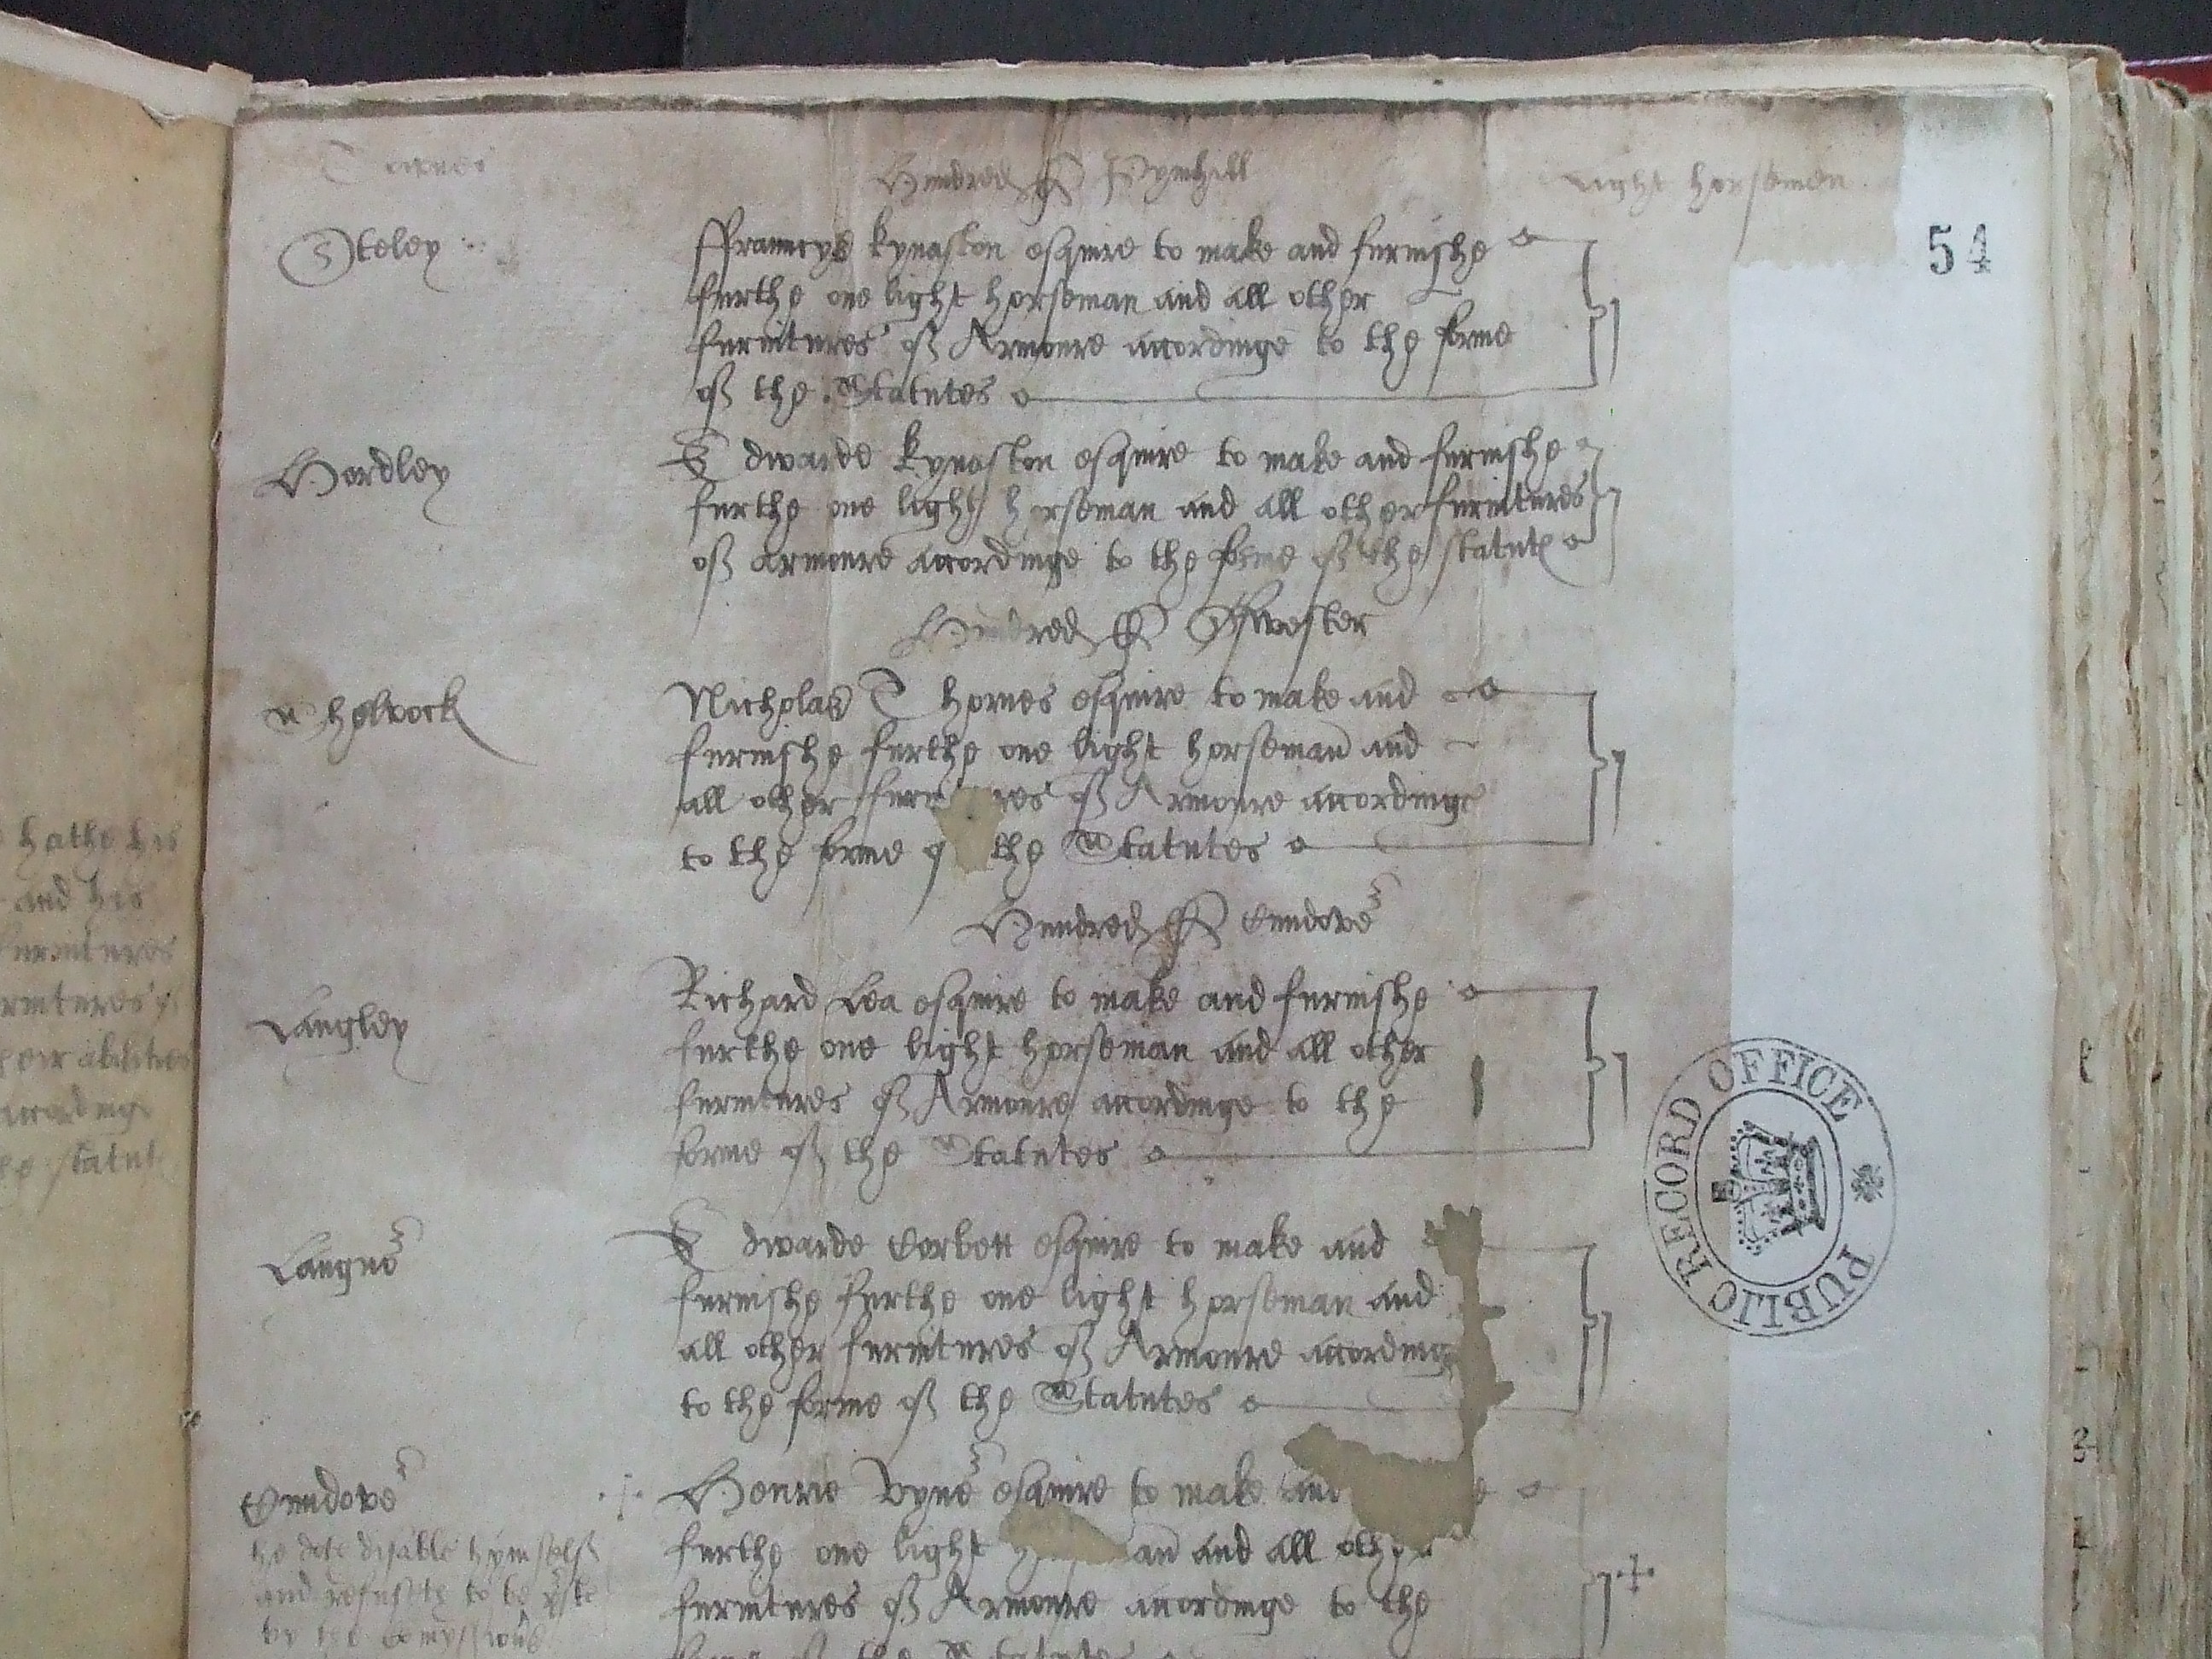 Townes
Hundred of Pymhill
Light horsemen
54
Oteley
ffrauncys kynaston esquire to make and furnishe
furthe one light horseman and all other
furnitures of Armoure accordinge to the forme
of the Statutes
j
Hordley
Edwarde kynaston esquire to make and furnishe
furthe one light horseman and all other furnitures
of armoure accordinge to the forme of the statute
j
Hundred of Osswester
Shelvock
Nicholas Thornes esquire to make and
furnishe furthe one light horseman and
all other furn res of Armoure accordinge
to the forme o the Statutes
j
Hundred of Cundover
Langley
Richard Lea esquire to make and furnishe
furthe one light horseman and all other
furnitures of Armoure accordinge to the
forme of the Statutes
j
Langnor
Edwarde Corbett esquire to make and
furnishe furthe one light horseman and
all other furnitures of Armoure accordinge
to the forme of the Statutes
j
Cundover
he dothe disable hymself
and refusethe to be
by the comyssion
Henrie Vyner esquire to make and e
furthe one light an and all other
furnitures of Armoure accordinge to the
forme of the Statutes
j
hathe his
and his
furnitures
furnitures
their abilities
accordinge
the statut
PUBLIC RECORD OFFICE